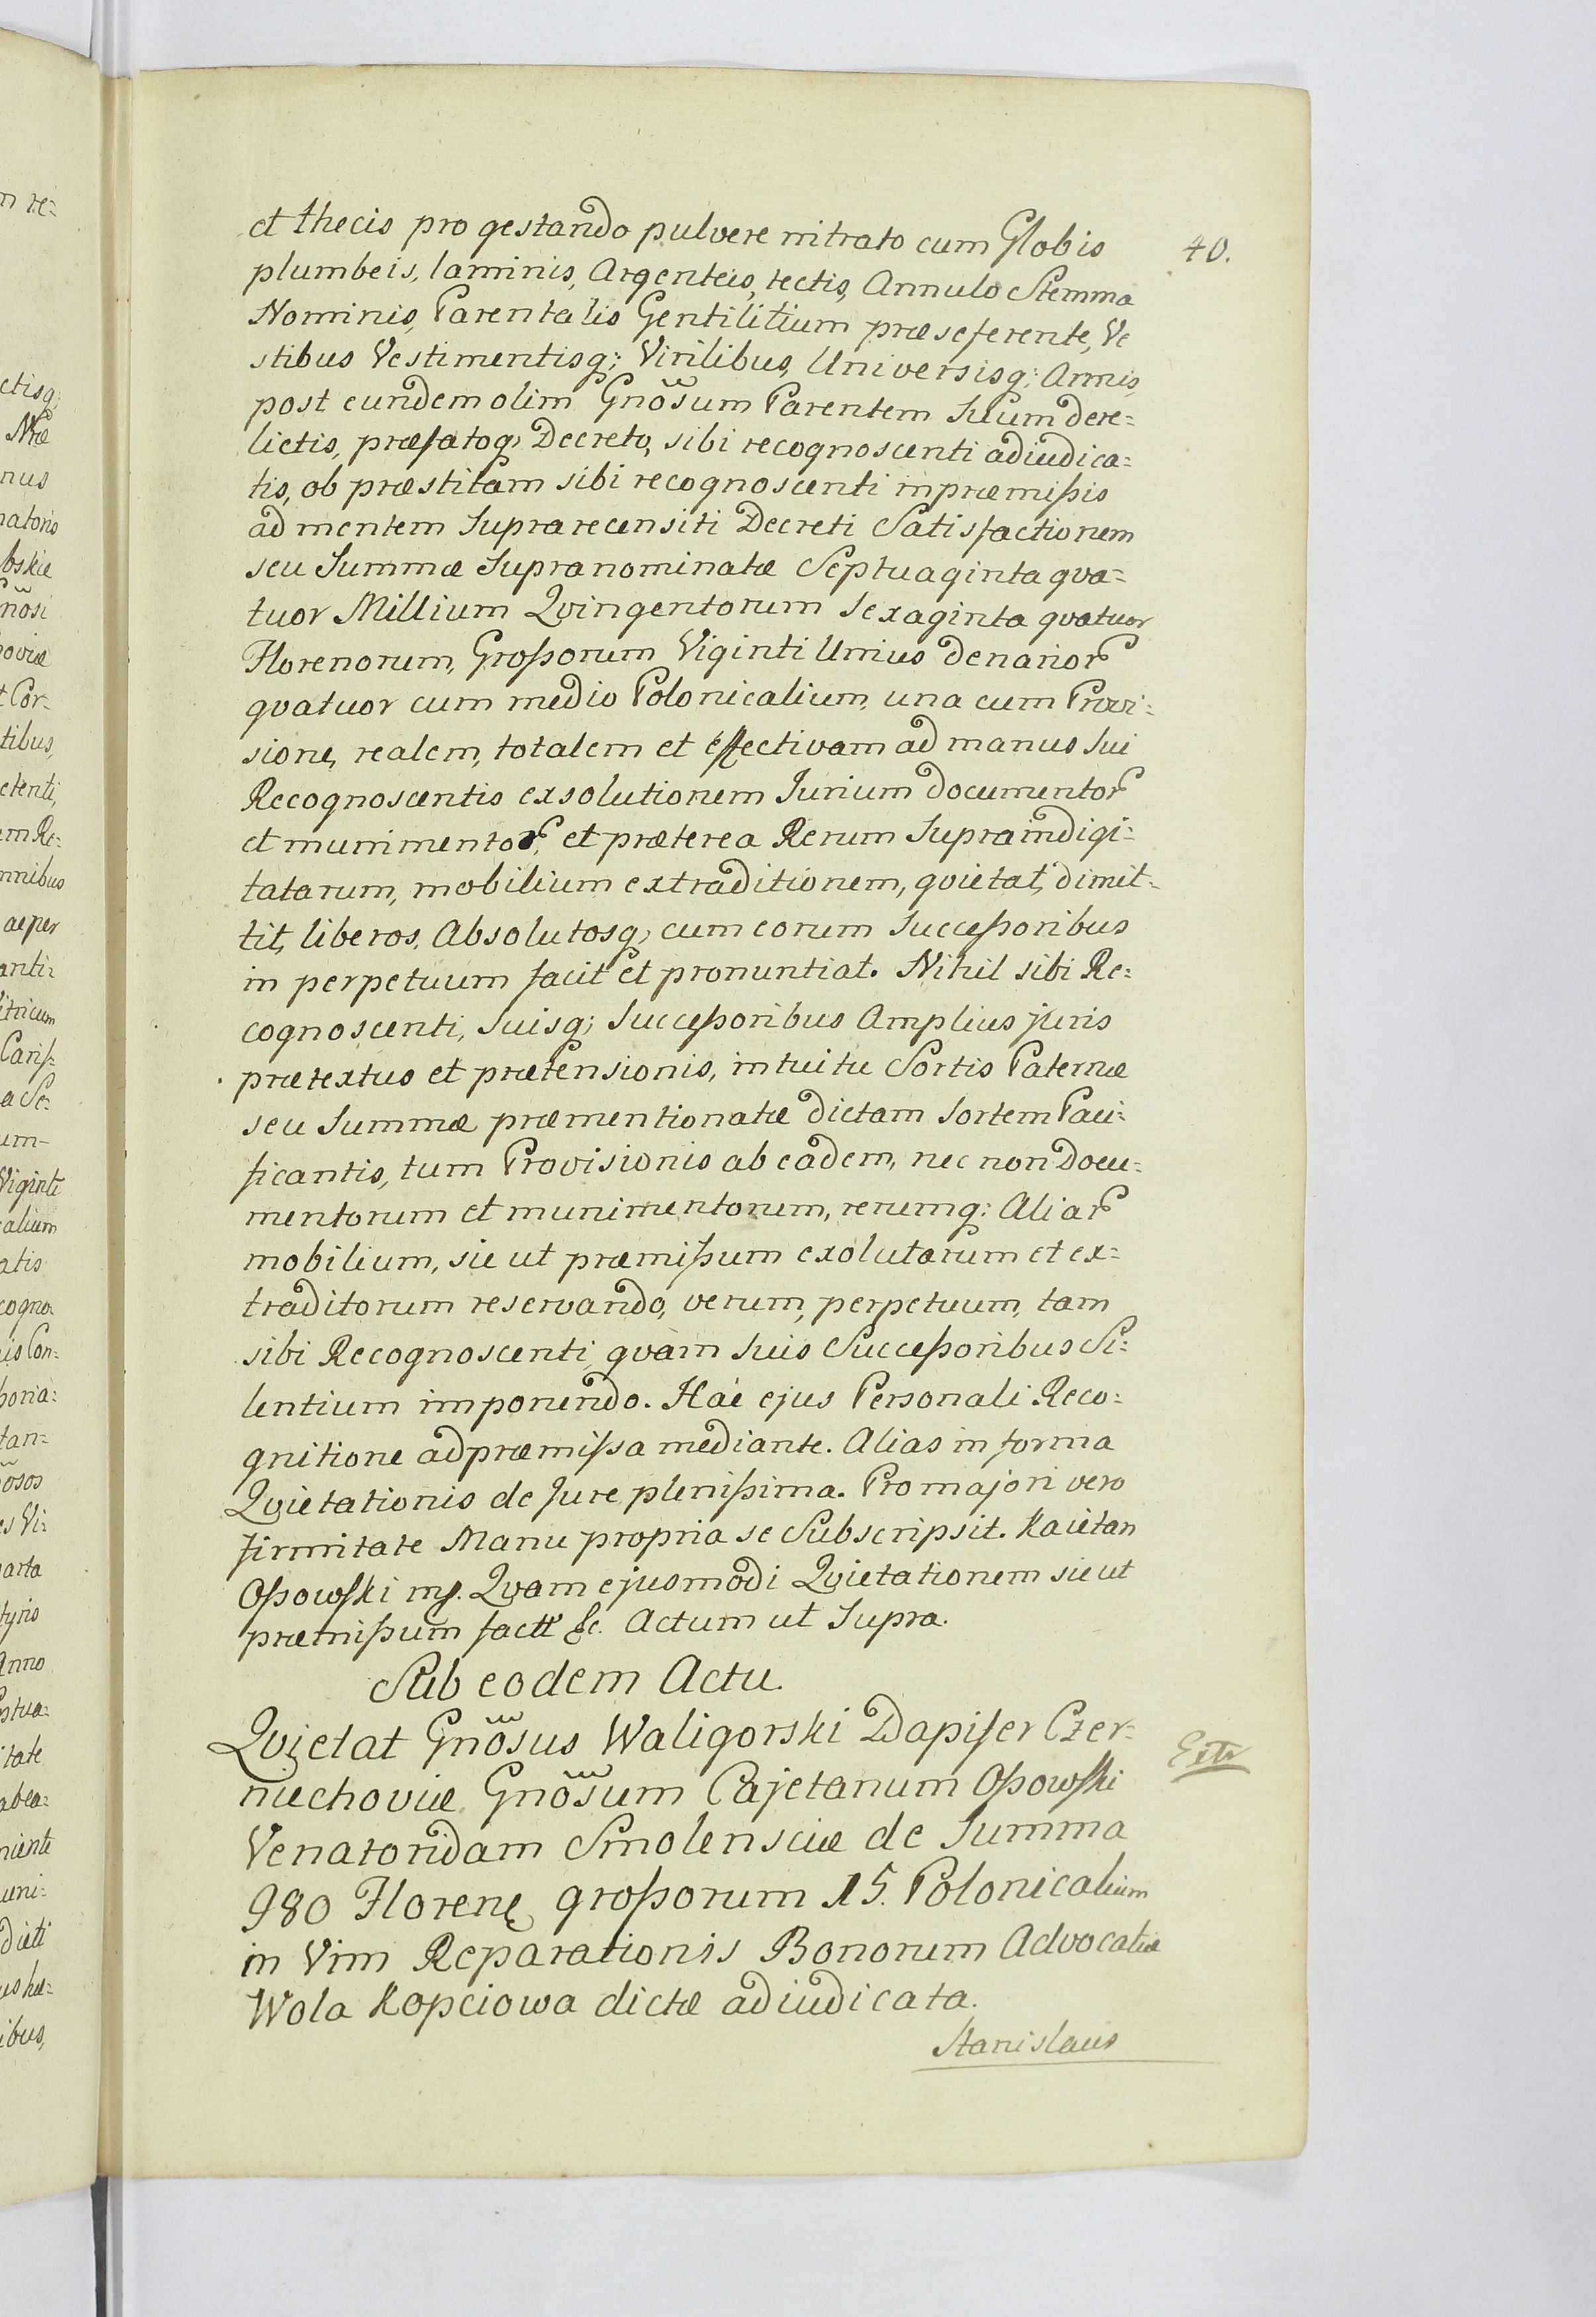 40.
et thecis pro gestando pulvere nitrato cum Globis
plumbeis, laminis, Argenteis, tectis, Annulo Stemma
Nominis, Parentalis Gentilitium præseferente, Ve
stibus Vestimentisq; Virilibus, Universisq; Armis,
post eundem olim Gnõsum Parentem Suum dere=
lictis, præfatoq; Decreto, sibi recognoscenti adiudica=
tis, ob præstitam sibi recognoscenti in præmißis
ad mentem Suprarecensiti Decreti Satisfactionem
seu Summæ Supranominatæ Septuaginta qva=
tuor Millium Qvingentorum Sexaginta qvatuor
Florenorum, Großorum Viginti Unius denarior
qvatuor cum medio Polonicalium, una cum Provi=
sione, realem, totalem et effectivam ad manus Sui
Recognoscentis exsolutionem Jurium documentor
et munimentor, et præterea Rerum Supraindigi=
tatarum, mobilium extraditionem, qvietat, dimit=
tit, liberos, Absolutosq; cum eorum Succeßoribus
in perpetuum facit et pronuntiat. Nihil sibi Re=
cognoscenti, Suisq; Succeßoribus Amplius juris
prætextus et prætensionis, intuitu Sortis Paternæ
seu Summæ præmentionatæ dictam Sortem Paci=
ficantis, tum Provisionis ab eadem, nec non Docu=
mentorum et munimentorum, rerumq: Aliar
mobilium, sic ut præmißum exolutarum et ex=
traditorum reservando, verum, perpetuum, tam
sibi Recognoscenti qvàm Suis Succeßoribus Si=
lentium imponendo. Hac ejus Personali Reco=
gnitione ad præmissa mediante. Alias in forma
Qvietationis de Jure plenißima. Pro majori vero
firmitate Manu propria se Subscripsit. Kaietan
Oßowski mp. Qvam ejusmodi Qvietationem sic ut
præmißum factt &c. Actum ut Supra.
Sub eodem Actu.
Qvietat Gnõsus Waligorski Dapifer Czer=
niechoviæ Gnõsum Cajetanum Oßowski
Venatoridam Smolensciæ de Summa
980 Floren großorum 15. Polonicalium
in Vim Reparationis Bonorum Advocatiæ
Wola Kopciowa dictæ adiudicata.
Stanislaus